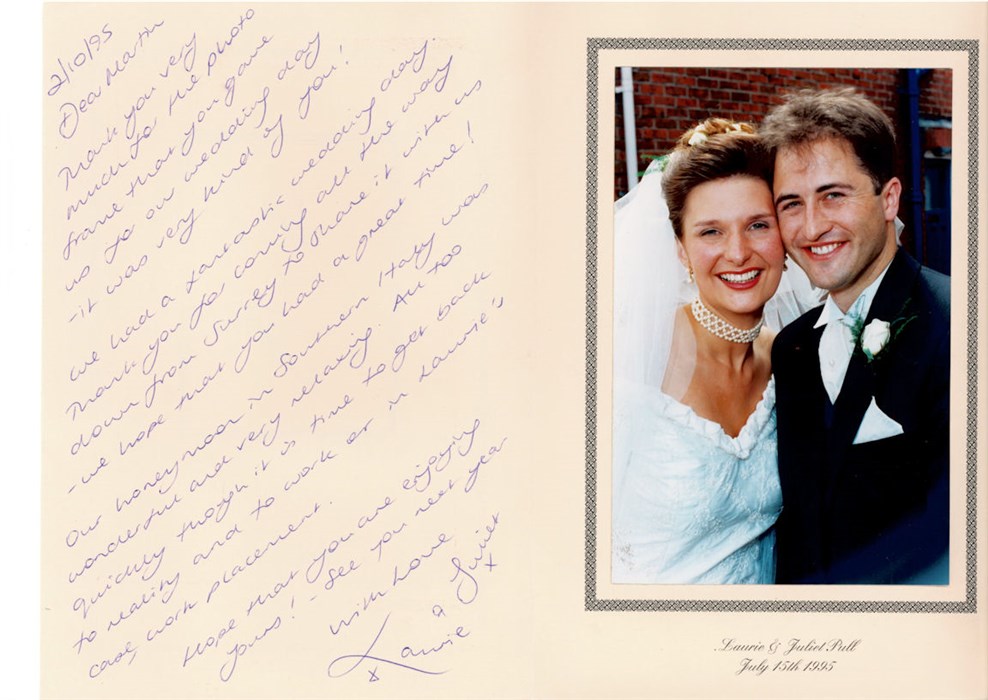 2/10/95
Dear Martin
Thank you very
much for the photo
frame that you gave
us for our wedding day
- it was very kind of you!
We had a fantastic wedding day.
Thank you for coming all the way
down from Surrey to share it with us
- we hope that you had a great time!
Our honeymoon in Southern Italy was
wonderful and very relaxing. All too
quickly though it is time to get back
to reality and to work or in Laurie's
case, work placement.
Hope that you are enjoying
yours! - See you next year
With love
Laurie & Juliet
x x
Laurie & Juliet Pull
July 15th 1995